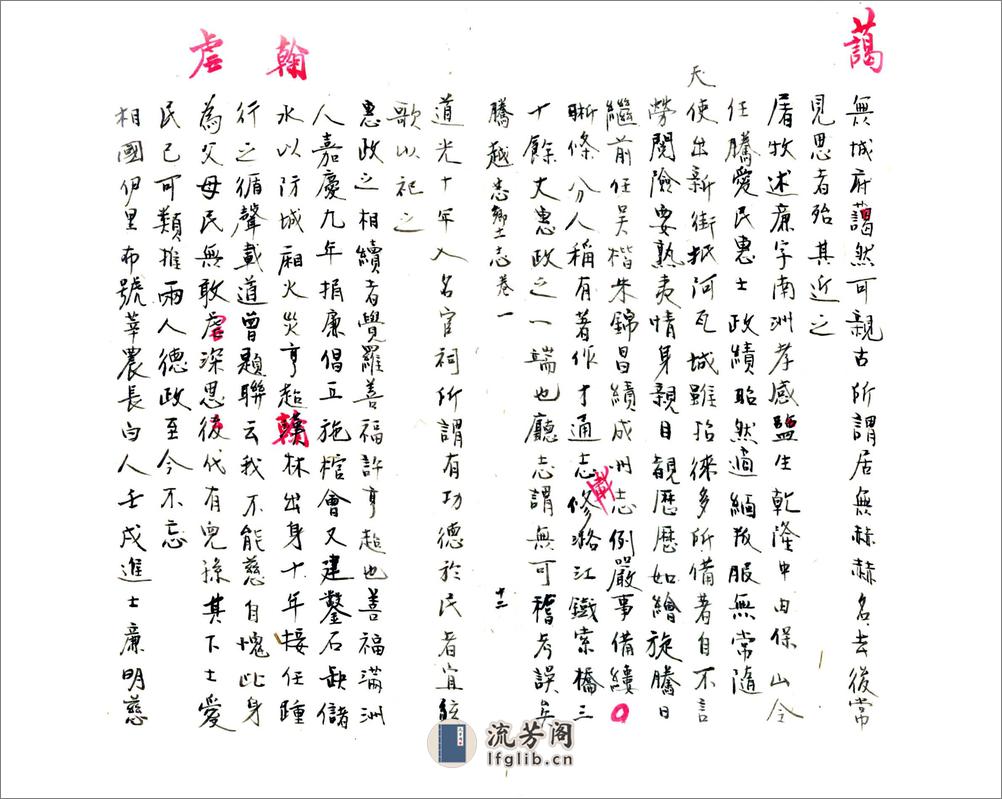 藹
無城府藹然可親古所謂居無赫赫名去後常
見思者殆其近之
屠牧述廉字南洲孝感監生乾隆中由保山令
任騰愛民惠士政績昭然適緬叛服無常隨
天
使出新街抵河瓦城雖招徠多所備著自不言
勞閱險要熟夷情身親目覩歷歷如繪旋騰日
繼前任吳楷朱錦昌續成州志例嚴事備縷
晰條分人稱有著作才通志修潞江鐵索橋三
十餘丈惠政之一端也廳志謂無可稽考誤矣
騰越志鄉土志卷一
十二
虐 翰
道光十年入名宦祠所謂有功德於民者宜絃
歌以祀之
惠政之相續者覺羅善福許亨超也善福滿洲
人嘉慶九年捐廉倡立施棺會又建鑿石缺儲
水以防城廂火災亨超翰林出身十年接任踵
行之循聲載道曾題聯云我不能慈自愧此身
為父母民無敢虐深思後代有兒孫其下士愛
民已可類推兩人德政至今不忘
相國伊里布號莘農長白人壬戌進士廉明慈
流芳阁
lfglib.cn